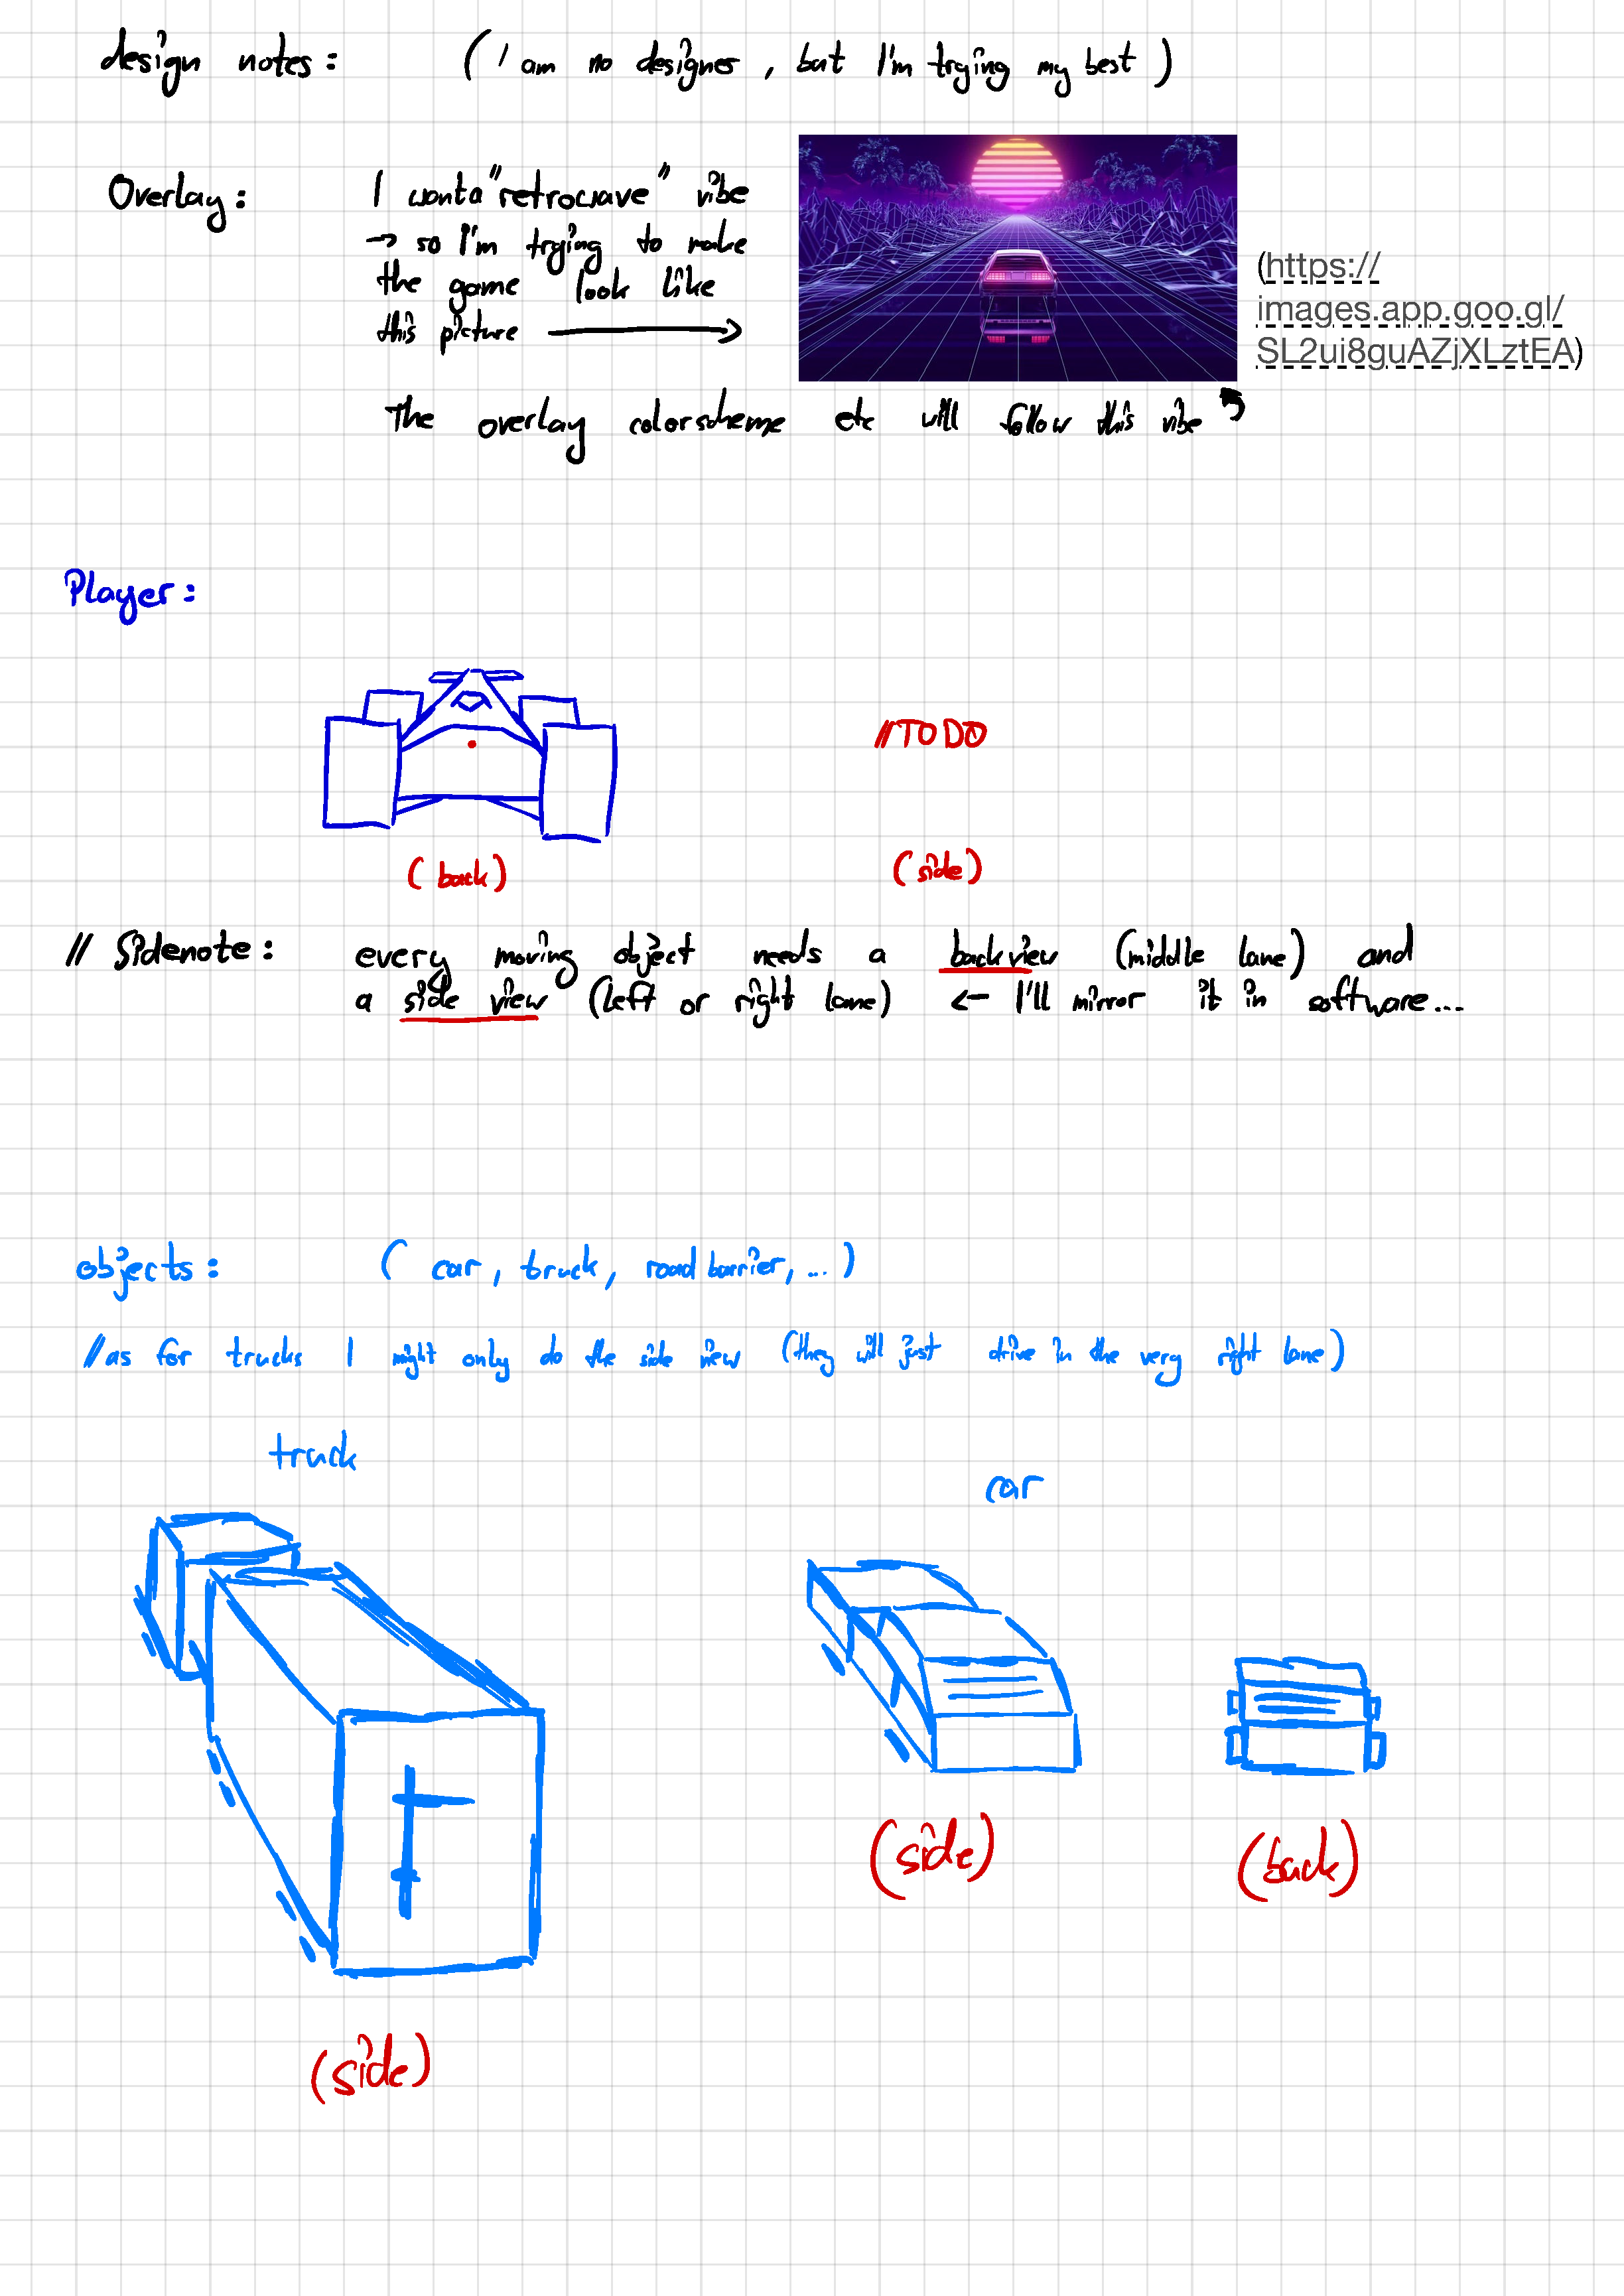 design notes: (I am no designer, but I'm trying my best)
Overlay: I want a "retrowave" vibe
→ so I'm trying to make
the game look like
this picture →
(https://
images.app.goo.gl/
SL2ui8guAZjXLztEA)
The overlay colorscheme etc will follow this vibe
Player:
//TODO
(back) (side)
// Sidenote: every moving object needs a back view (middle lane) and
a side view (left or right lane) ← I'll mirror it in software...
objects: (car, truck, road barrier, ...)
//as for trucks I might only do the side view (they will just drive in the very right lane)
truck
car
(side) (back)
(side)